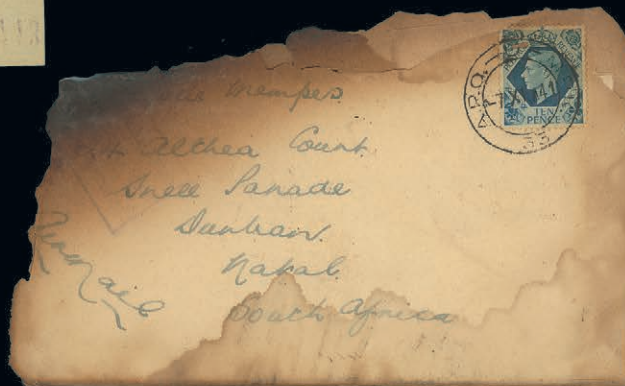 de Mempes
4 Althea Court
Snell Parade
Durban
Natal
South Africa
Air Mail
A.P.O.
7 X 41
TEN
PENCE